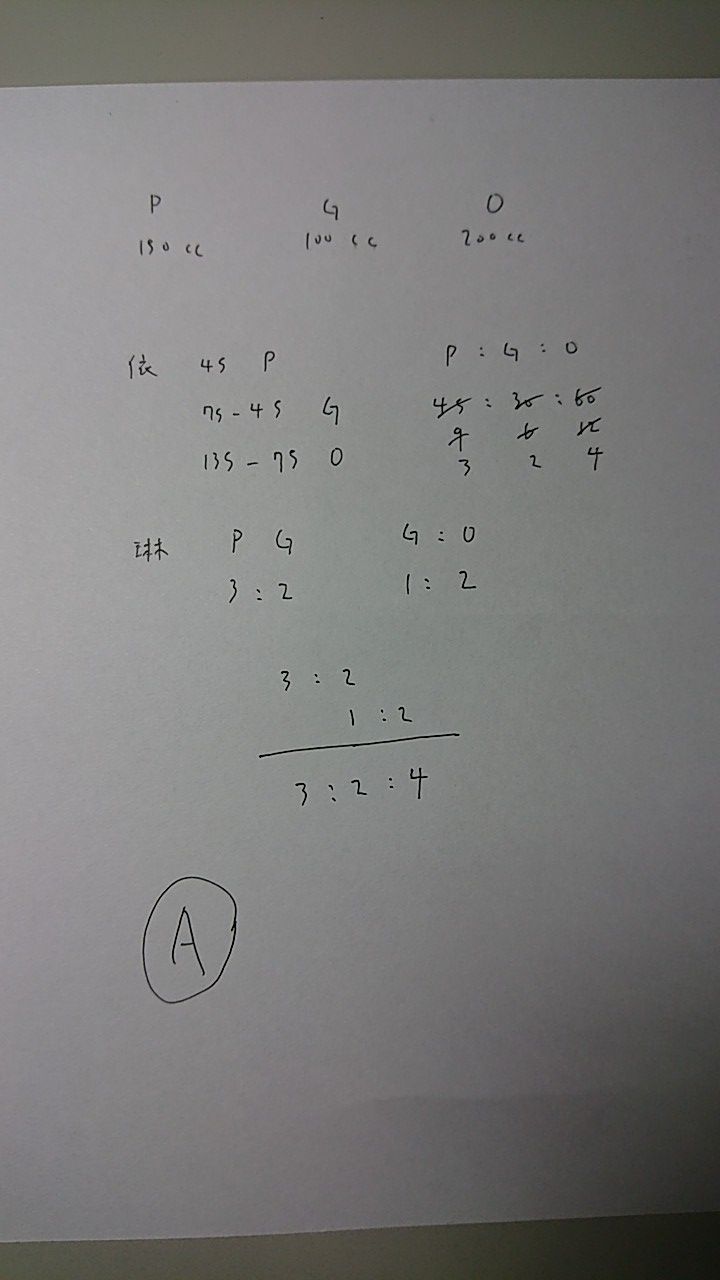 P G O
150 cc 100 cc 200 cc
依 45 P P : G : O
75 - 45 G 45 : 30 : 60
9 6 12
135 - 75 O 3 2 4
琳 P G G : O
3 : 2 1 : 2
3 : 2
1 : 2
3 : 2 : 4
A